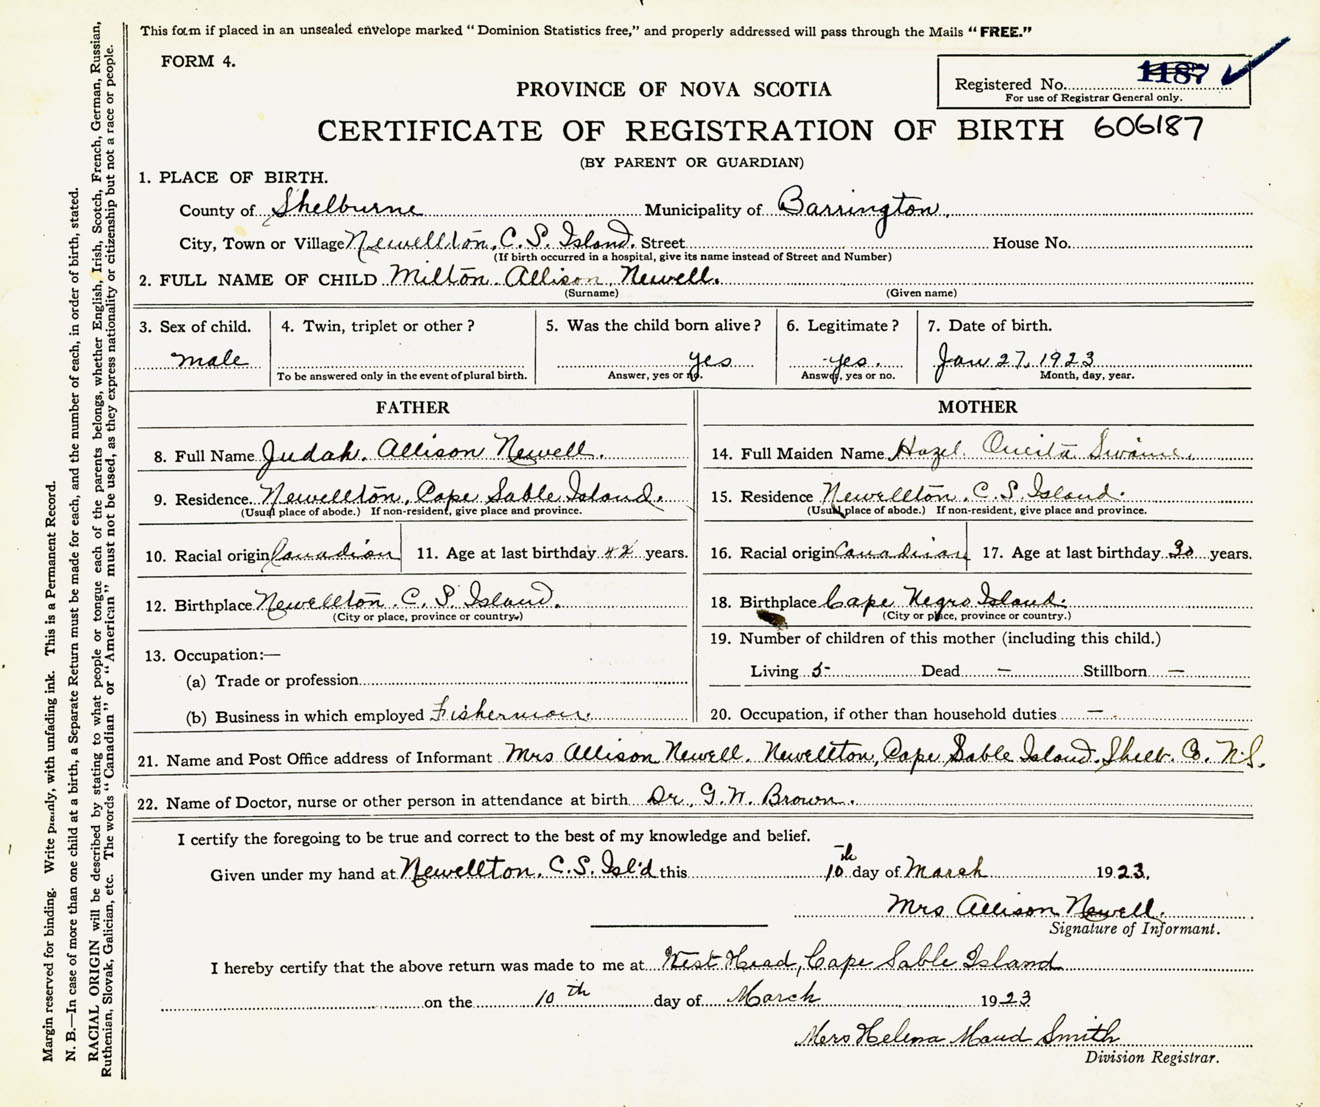 This form if placed in an unsealed envelope marked "Dominion Statistics free," and properly addressed will pass through the Mails "FREE."
FORM 4.
Registered No. 1187
For use of Registrar General only.
PROVINCE OF NOVA SCOTIA
CERTIFICATE OF REGISTRATION OF BIRTH 606187
(BY PARENT OR GUARDIAN)
1. PLACE OF BIRTH.
County of Shelburne Municipality of Barrington.
City, Town or Village Newellton, C. S. Island. Street House No.
(If birth occurred in a hospital, give its name instead of Street and Number)
2. FULL NAME OF CHILD Milton Allison Newell.
(Surname) (Given name)
3. Sex of child. 4. Twin, triplet or other? 5. Was the child born alive? 6. Legitimate? 7. Date of birth.
male yes yes. Jan 27, 1923
To be answered only in the event of plural birth. Answer, yes or no. Answer, yes or no. Month, day, year.
FATHER
8. Full Name Judah. Allison Newell.
9. Residence. Newellton, Cape Sable Island.
(Usual place of abode.) If non-resident, give place and province.
10. Racial origin Canadian 11. Age at last birthday 42 years.
12. Birthplace Newellton. C. S. Island.
(City or place, province or country.)
13. Occupation:—
(a) Trade or profession
(b) Business in which employed Fisherman.
MOTHER
14. Full Maiden Name Hazel Swaine.
15. Residence Newellton. C. S. Island.
(Usual place of abode.) If non-resident, give place and province.
16. Racial origin Canadian 17. Age at last birthday 30 years.
18. Birthplace Cape Negro Island.
(City or place, province or country.)
19. Number of children of this mother (including this child.)
Living 5- Dead — Stillborn —
20. Occupation, if other than household duties —
21. Name and Post Office address of Informant Mrs Allison Newell. Newellton, Cape Sable Island. Shelb. Co. N.S.
22. Name of Doctor, nurse or other person in attendance at birth Dr. G. W. Brown.
I certify the foregoing to be true and correct to the best of my knowledge and belief.
Given under my hand at Newellton. C.S. Isl'd this 10th day of March 1923.
Mrs Allison Newell.
Signature of Informant.
I hereby certify that the above return was made to me at West Head, Cape Sable Island
on the 10th day of March 1923
Mrs Helena Maud Smith
Division Registrar.
Margin reserved for binding. Write plainly, with unfading ink. This is a Permanent Record.
N. B.—In case of more than one child at a birth, a Separate Return must be made for each, and the number of each, in order of birth, stated.
RACIAL ORIGIN will be described by stating to what people or tongue each of the parents belongs, whether English, Irish, Scotch, French, German, Russian,
Ruthenian, Slovak, Galician, etc. The words "Canadian" or "American" must not be used, as they express nationality or citizenship but not a race or people.